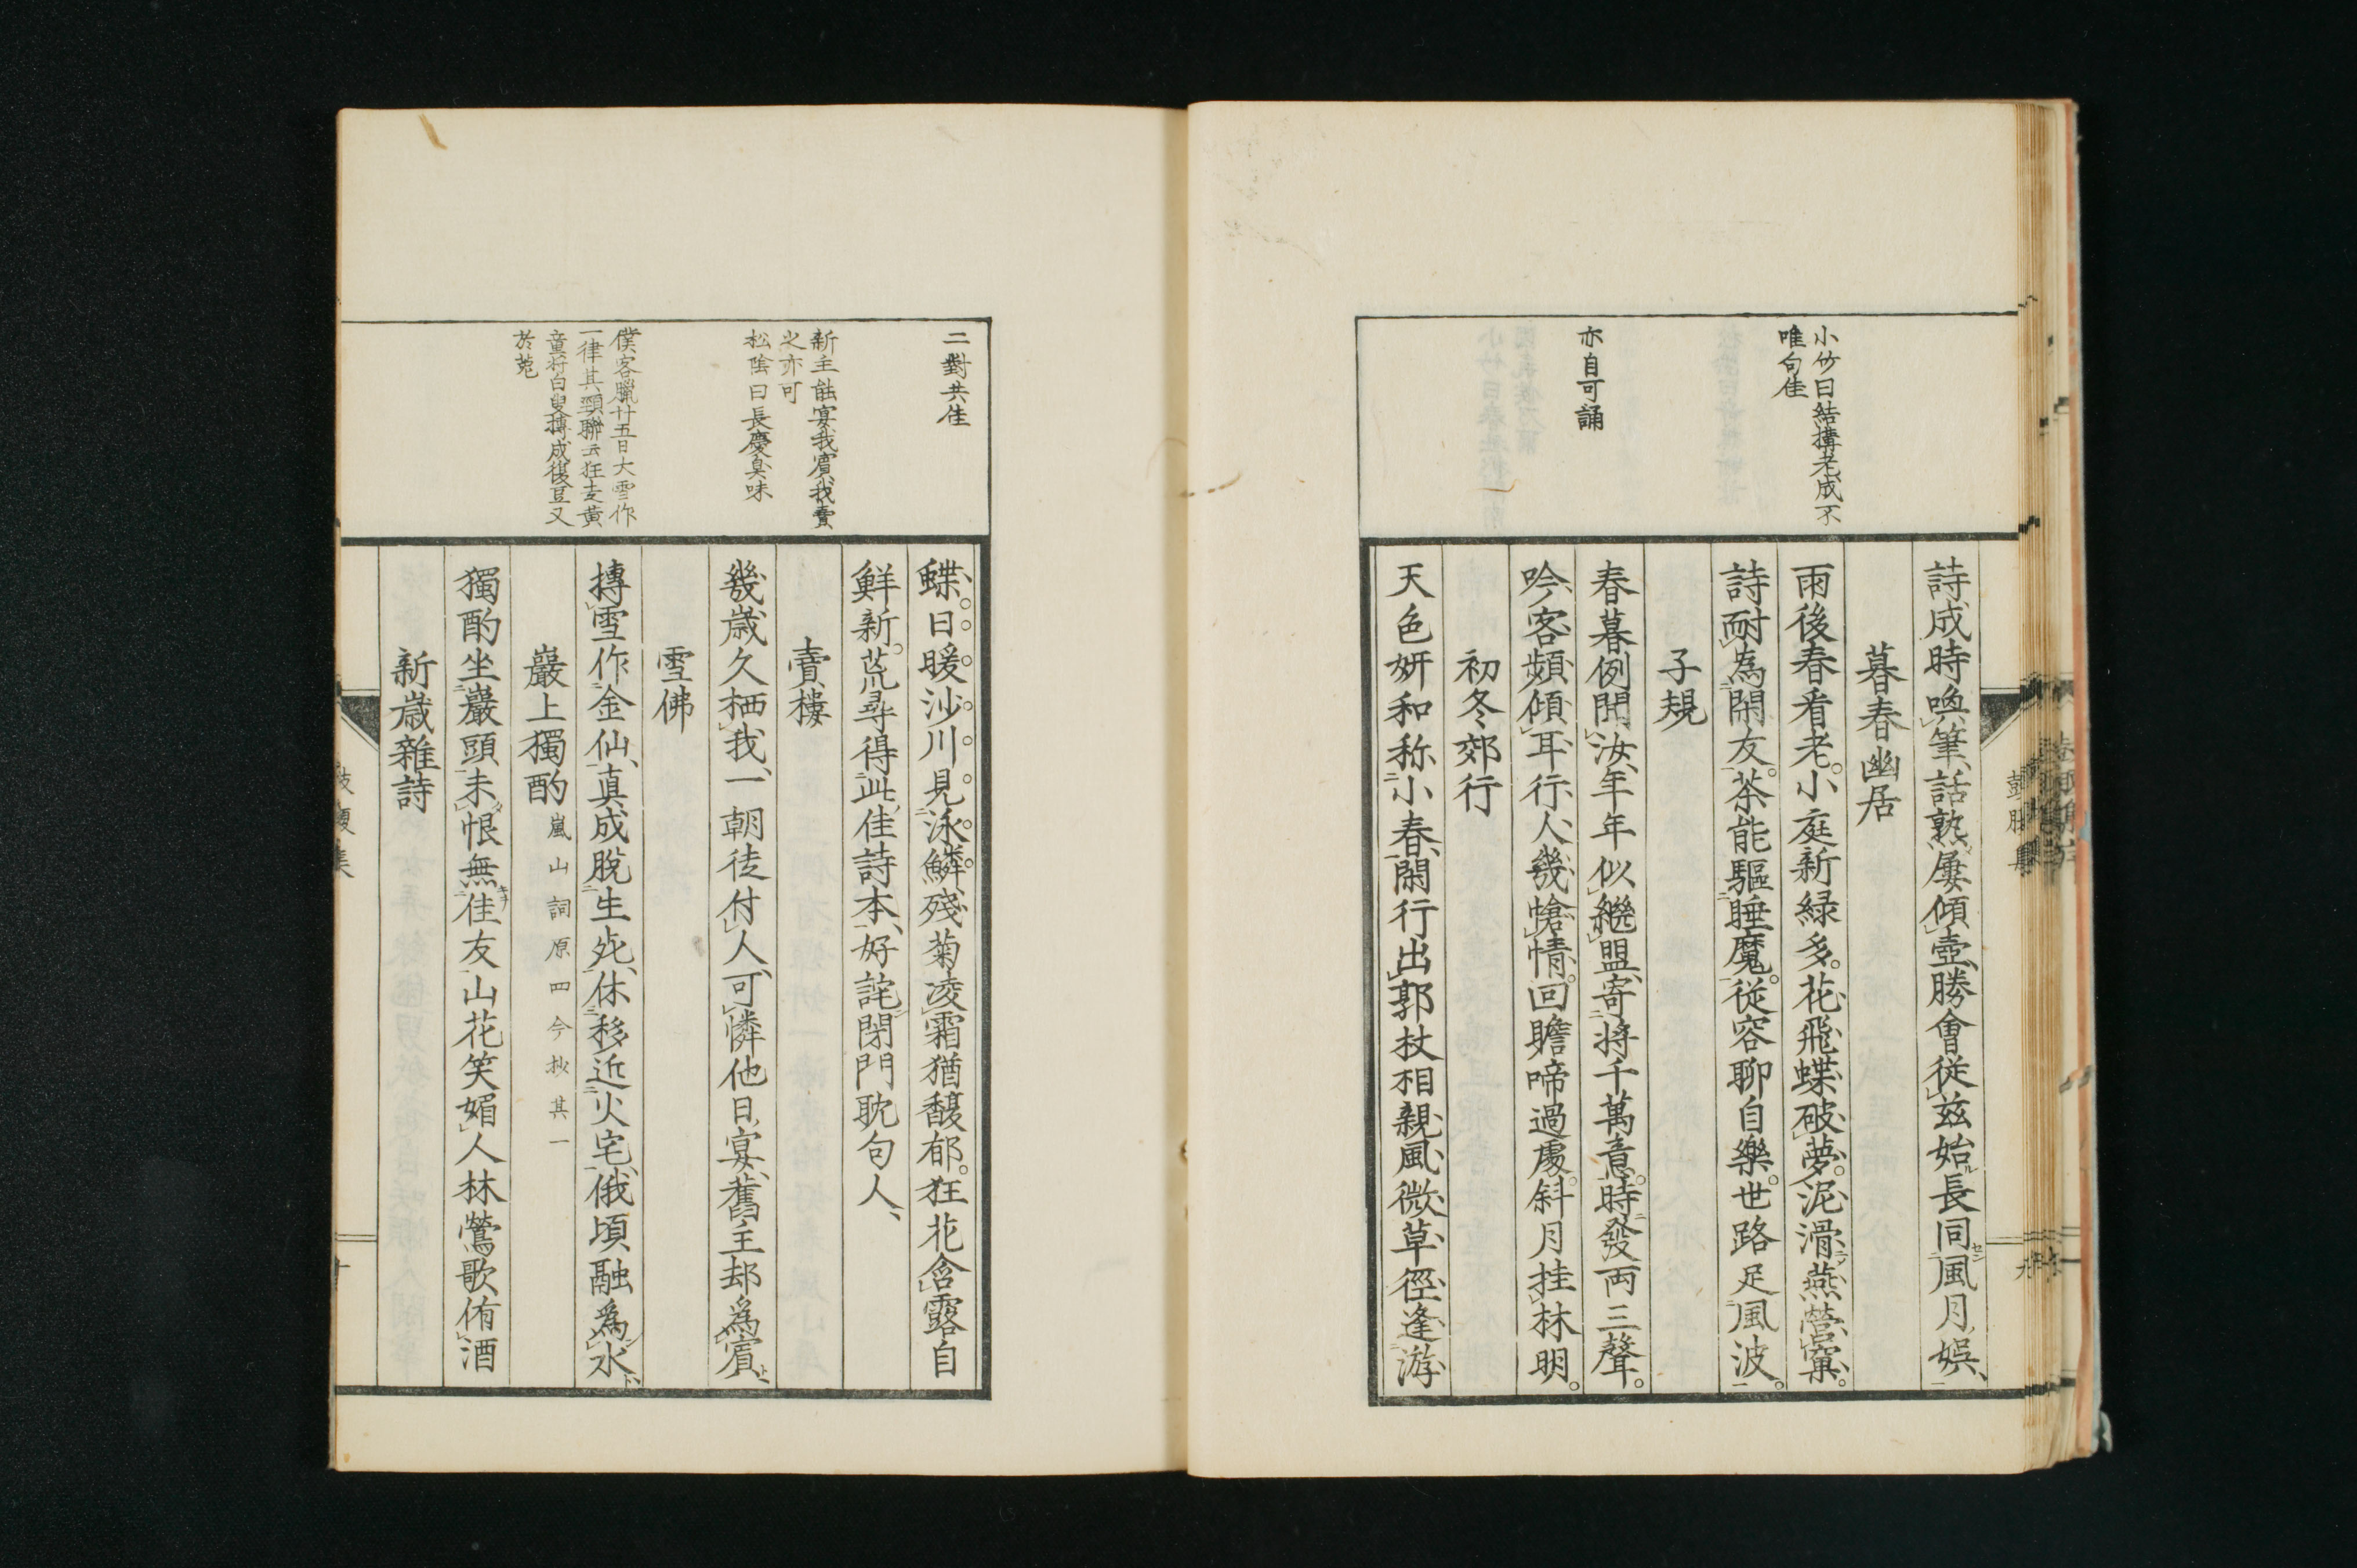 小竹曰結構老成不
唯句佳
亦自可誦
詩成時喚筆話熟屢傾壺勝會從茲始長同風月娯
暮春幽居
雨後春看老小庭新緑多花飛蝶破夢泥滑燕營窠
詩耐為閑友茶能驅睡魔從容聊自樂世路足風波
子規
春暮例聞汝年年似繼盟寄將千萬意時發両三聲
吟客頻傾耳行人幾愴情回瞻啼過處斜月挂林明
初冬郊行
天色妍和称小春閑行出郭杖相親風微草徑逢游
二對共佳
新主能宴我賓我賣
之亦可
松陰曰長慶臭味
僕客臘廿五日大雪作
一律其頸聯云狂走黄
童将白叟摶成復豆又
於菟
蝶日暖沙川見泳鱗殘菊凌霜猶馥郁狂花含露自
鮮新荒尋得此佳詩本好詫閉門耽句人
賣樓
幾歳久栖我一朝徒付人可憐他日宴舊主却爲賓
雪佛
摶雪作金仙真成脱生死休移近火宅俄頃融爲水
巖上獨酌 嵐山詞原四今抄其一
獨酌坐巖頭未恨無佳友山花笑媚人林鶯歌侑酒
新歳雜詩